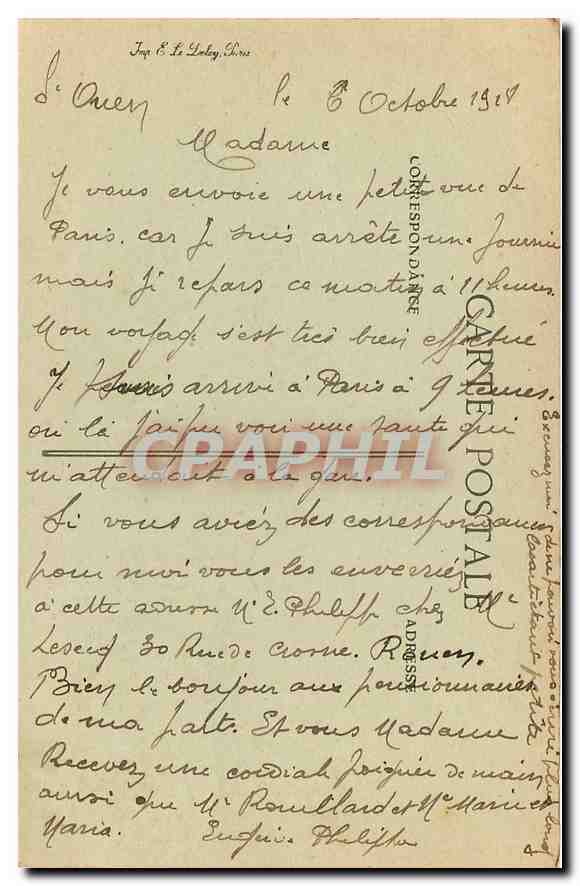 Imp. E. Le Deley, Paris
St Ouen le 6 Octobre 1918
Madame
Je vous envoie une petit vue de
Paris. car Je suis arrête une Journée
mais Ji repars ce matin à 11 heures.
Mon voyage s'est très bien effectué
Je suis arrivé à Paris à 9 heures.
où là j'ai pu voir une tante qui
m'attendait à la gare.
Si vous aviez des correspondances
pour moi vous les enverriez
à cette adresse Mr E. Philipp chez Mr
30 Rue de Crosne. Rouen.
Bien le bonjour aux pensionnaires
de ma part. Et vous Madame
Recevez une cordiale poignée de main
aussi que Mr Rouillard et Me Marie et
Maria. Philippe
Excusez moi de ne pouvoir vous écrire plus long
la carte étant petite
CORRESPONDANCE
CARTE POSTALE
ADRESSE
CPARPHIL